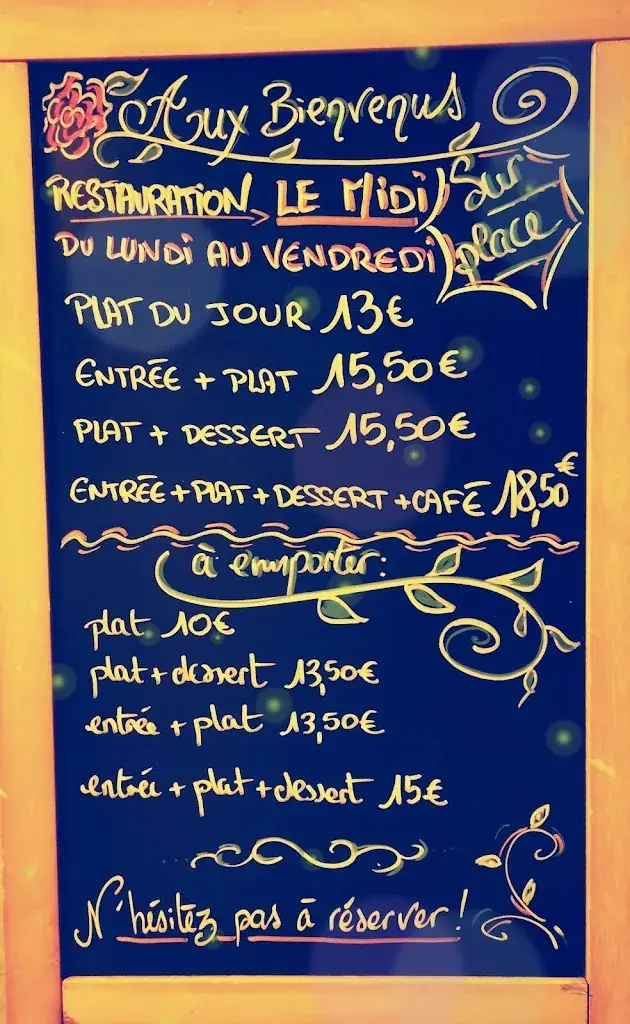 Aux Bienvenus
RESTAURATION LE MIDI
Sur place
DU LUNDI AU VENDREDI
PLAT DU JOUR 13€
ENTRÉE + PLAT 15,50€
PLAT + DESSERT 15,50€
ENTRÉE+PLAT+DESSERT+CAFÉ 18,50€
à emporter:
plat 10€
plat+dessert 13,50€
entrée + plat 13,50€
entrée + plat+dessert 15€
N'hésitez pas à réserver!